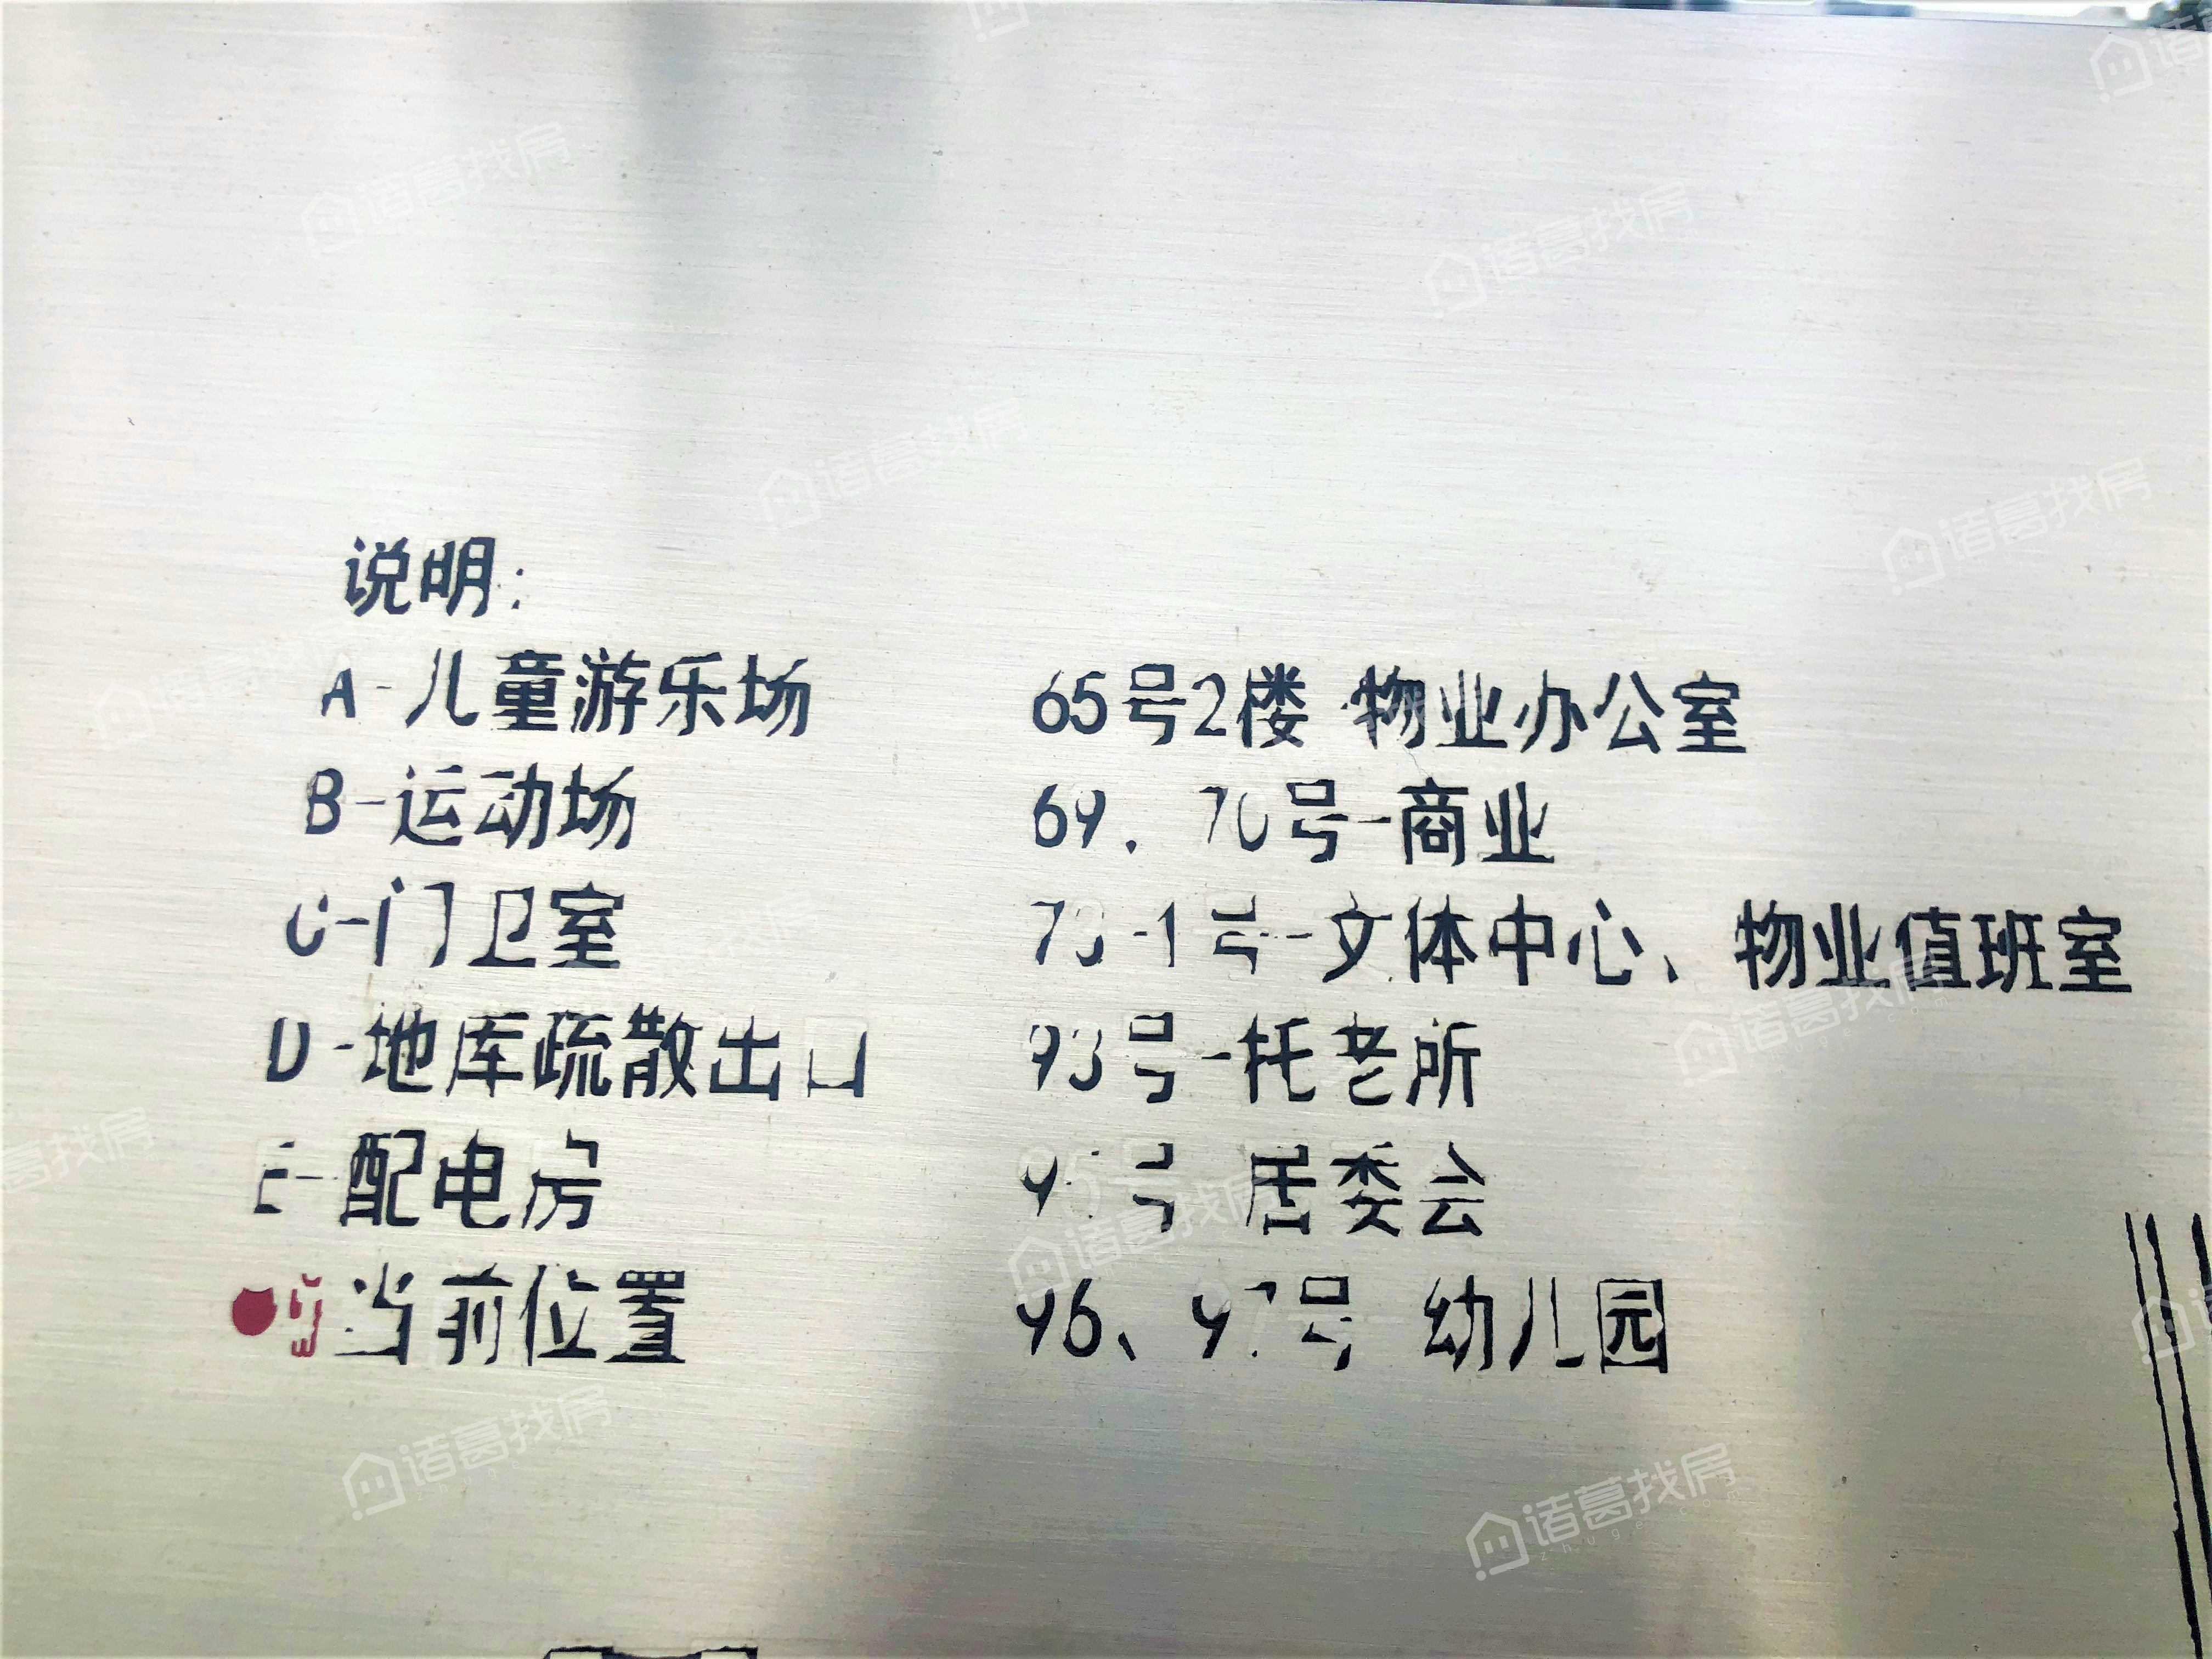 说明:
A-儿童游乐场
B-运动场
C-门卫室
D-地库疏散出口
E-配电房
当前位置
65号2楼-物业办公室
69、70号-商业
73-1号-文体中心、物业值班室
93号-托老所
号-居委会
96、97号-幼儿园
诸葛找房
zhuge.com